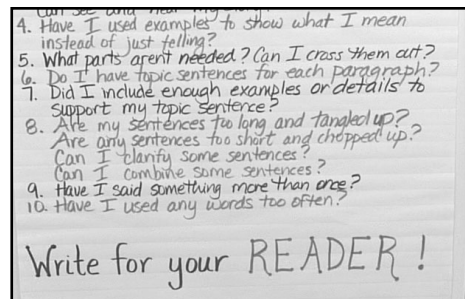 4. Have I used examples to show what I mean
instead of just telling?
5. What parts arent needed? Can I cross them out?
6. Do I have topic sentences for each paragraph?
7. Did I include enough examples or details to
support my topic sentence?
8. Are my sentences too long and tangled up?
Are any sentences too short and chopped up?
Can I clarify some sentences?
Can I combine some sentences?
9. Have I said something more than once?
10. Have I used any words too often?
Write for your READER!